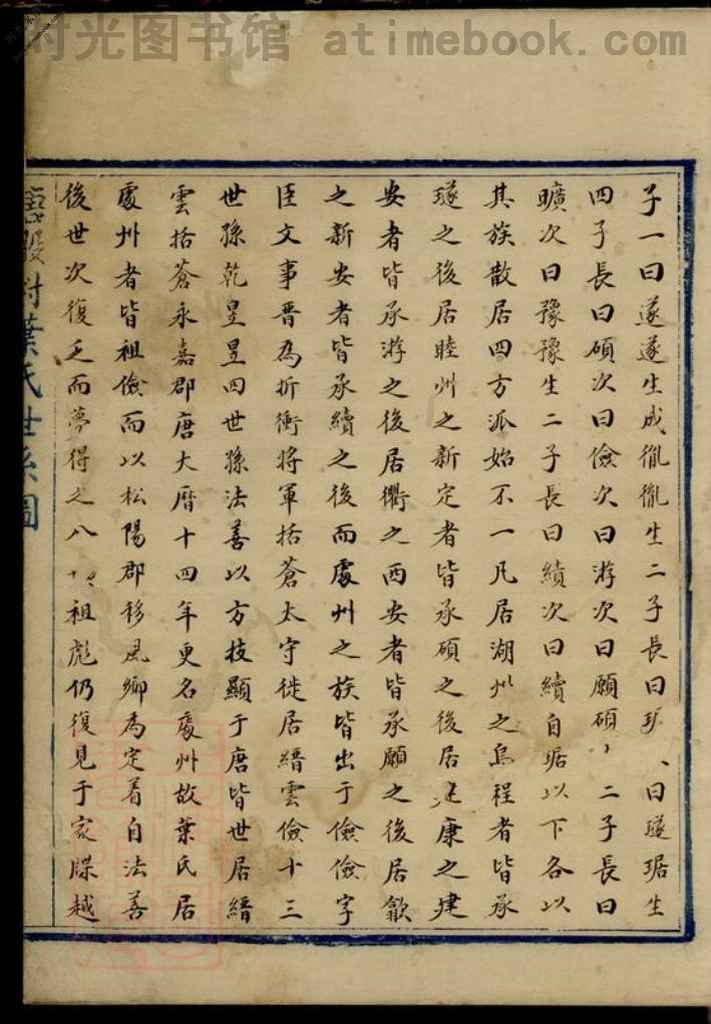 时光图书馆 atimebook.com
子一曰遂遂生成胤胤生二子長曰琚曰璲琚生
四子長曰碩次曰儉次曰游次曰願碩二子長曰
曠次曰豫豫生二子長曰績次曰續自琚以下各以
其族散居四方派始不一凡居湖州之烏程者皆承
璲之後居睦州之新定者皆承碩之後居建康之建
安者皆承游之後居衢之西安者皆承願之後居歙
之新安者皆承續之後而處州之族皆出于儉儉字
臣文事晋為折衝將軍括蒼太守徙居縉雲儉十三
世孫乾昱昱四世孫法善以方技顯于唐皆世居縉
雲括蒼永嘉郡唐大曆十四年更名處州故葉氏居
處州者皆祖儉而以松陽郡移風鄉為定着自法善
後世次復乏而夢得之八祖彪仍復見于家牒越
附葉氏世系圖